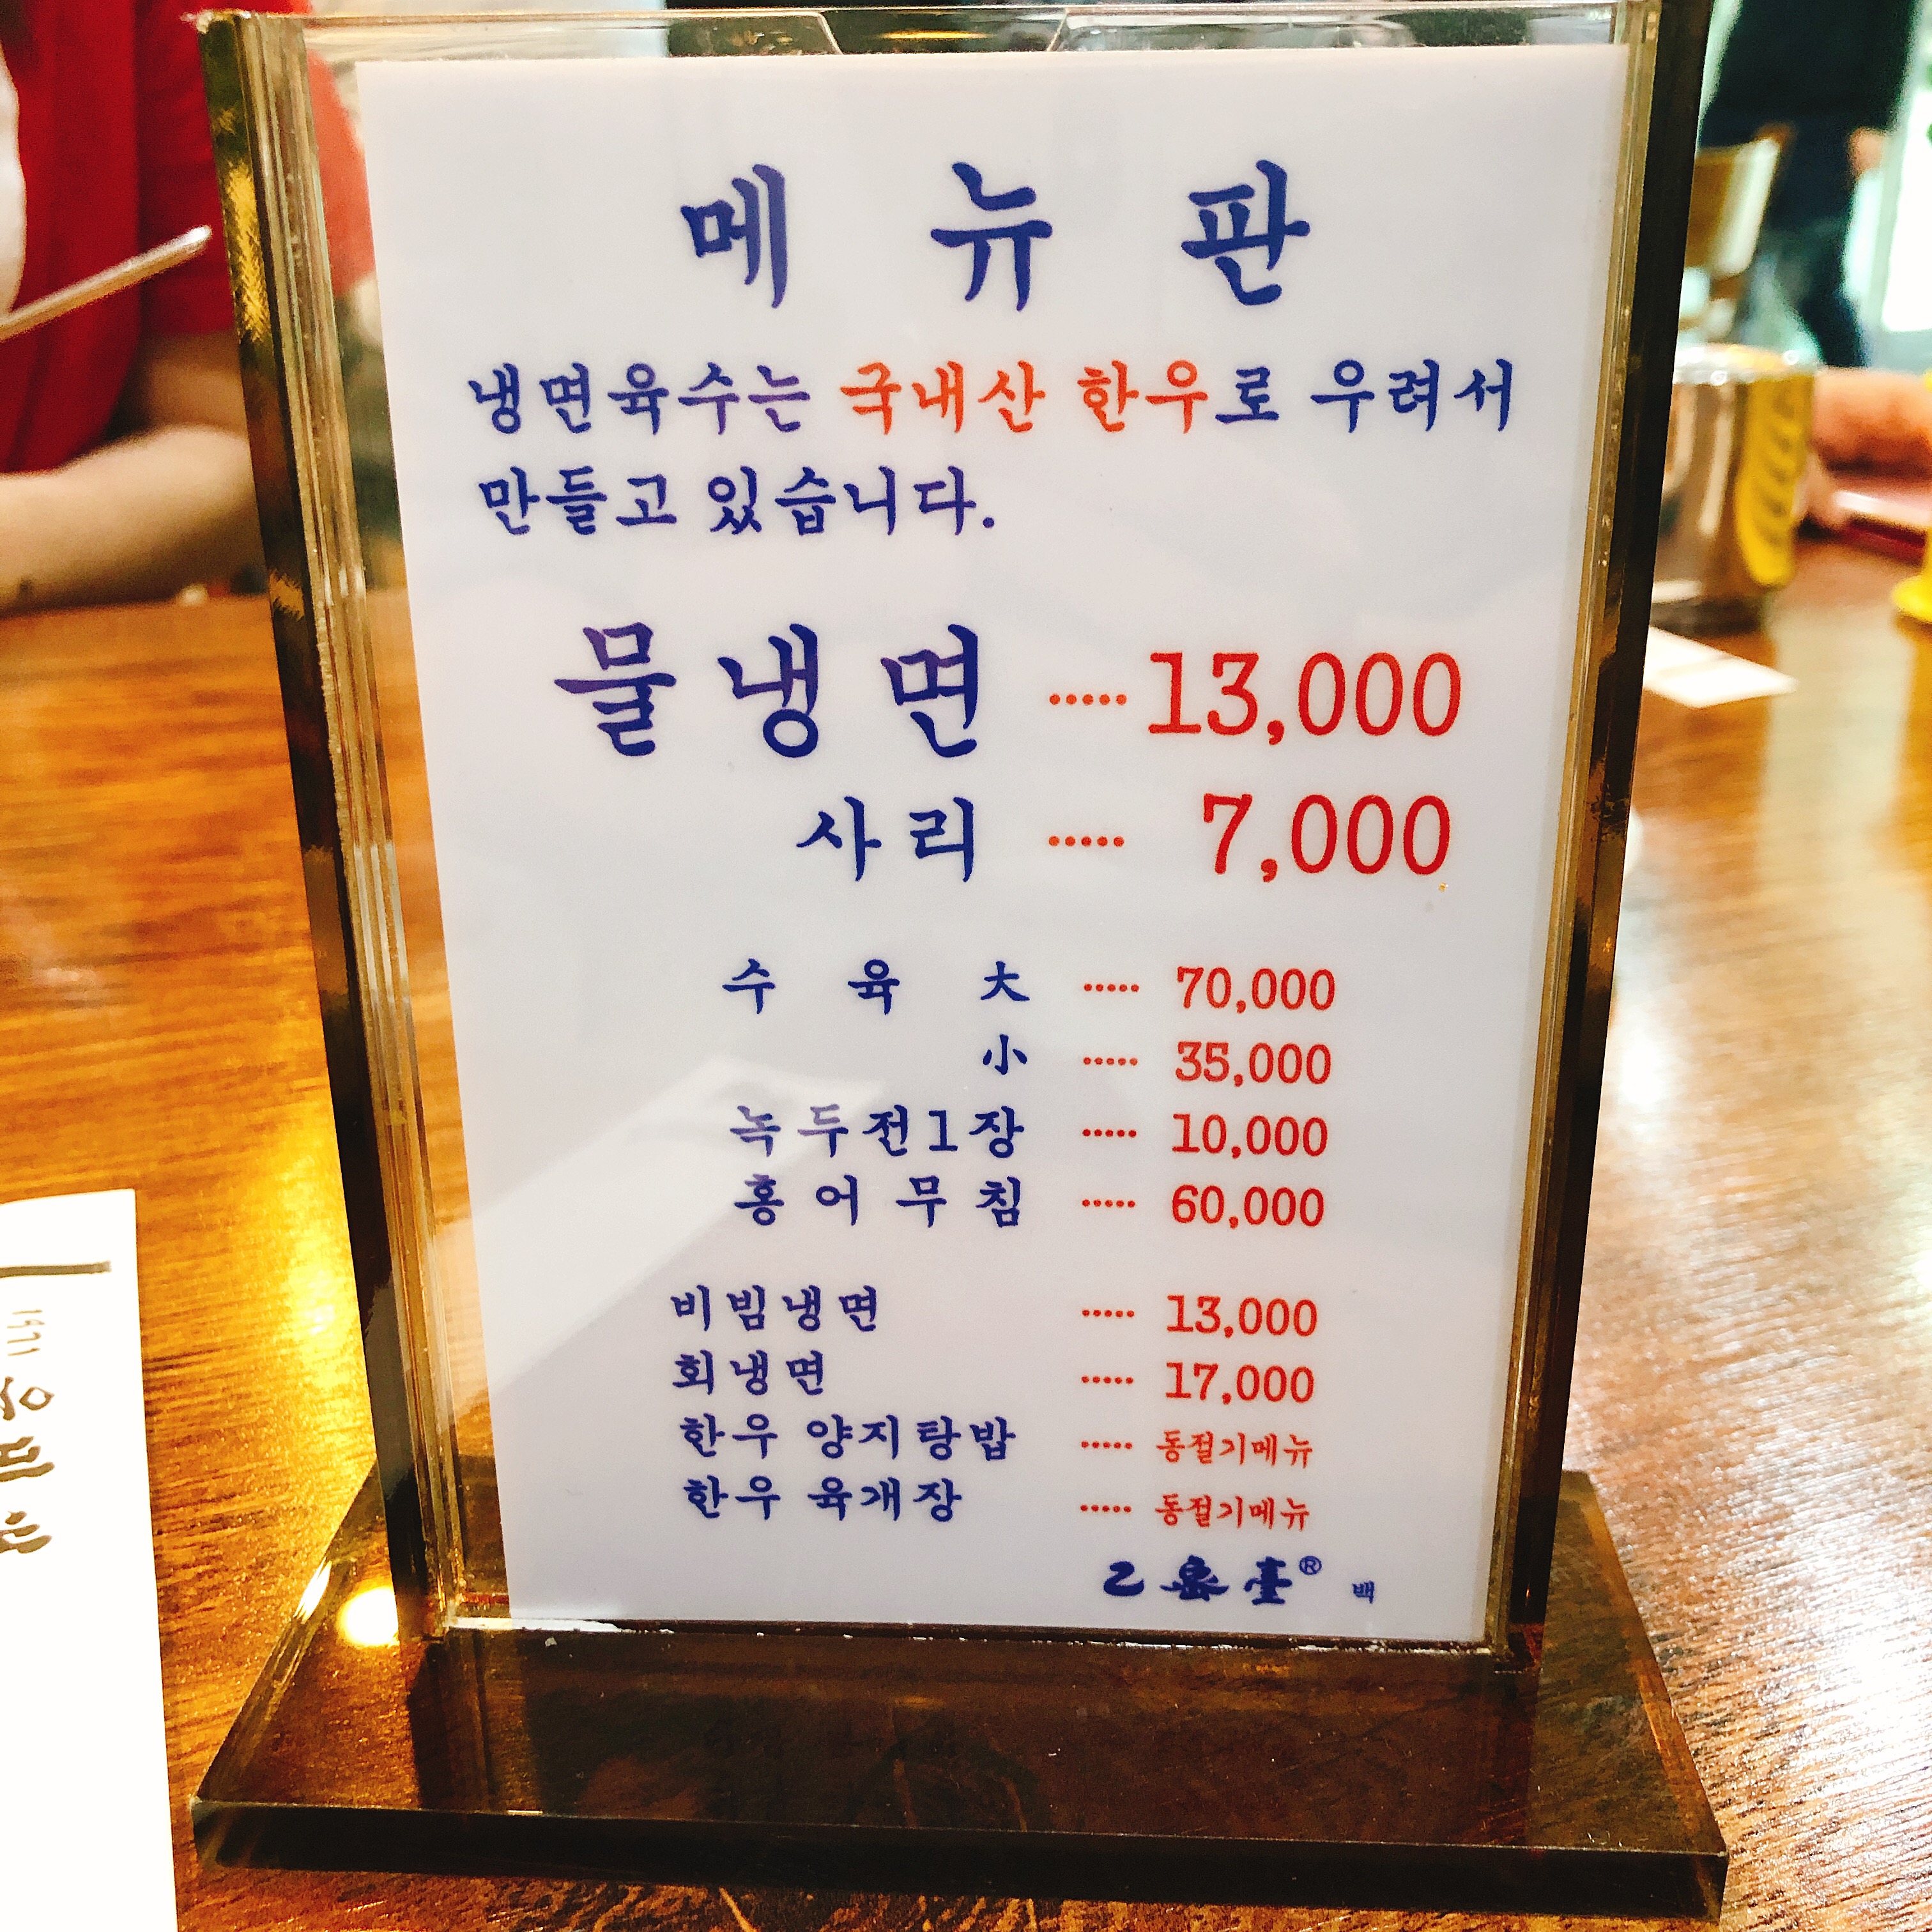 메뉴판
냉면육수는 국내산 한우로 우려서
만들고 있습니다.
물냉면 ····· 13,000
사리 ····· 7,000
수육 大 ····· 70,000
小 ····· 35,000
녹두전1장 ····· 10,000
홍어무침 ····· 60,000
비빔냉면 ····· 13,000
회냉면 ····· 17,000
한우 양지탕밥 ····· 동절기메뉴
한우 육개장 ····· 동절기메뉴
乙密臺® 백
1971